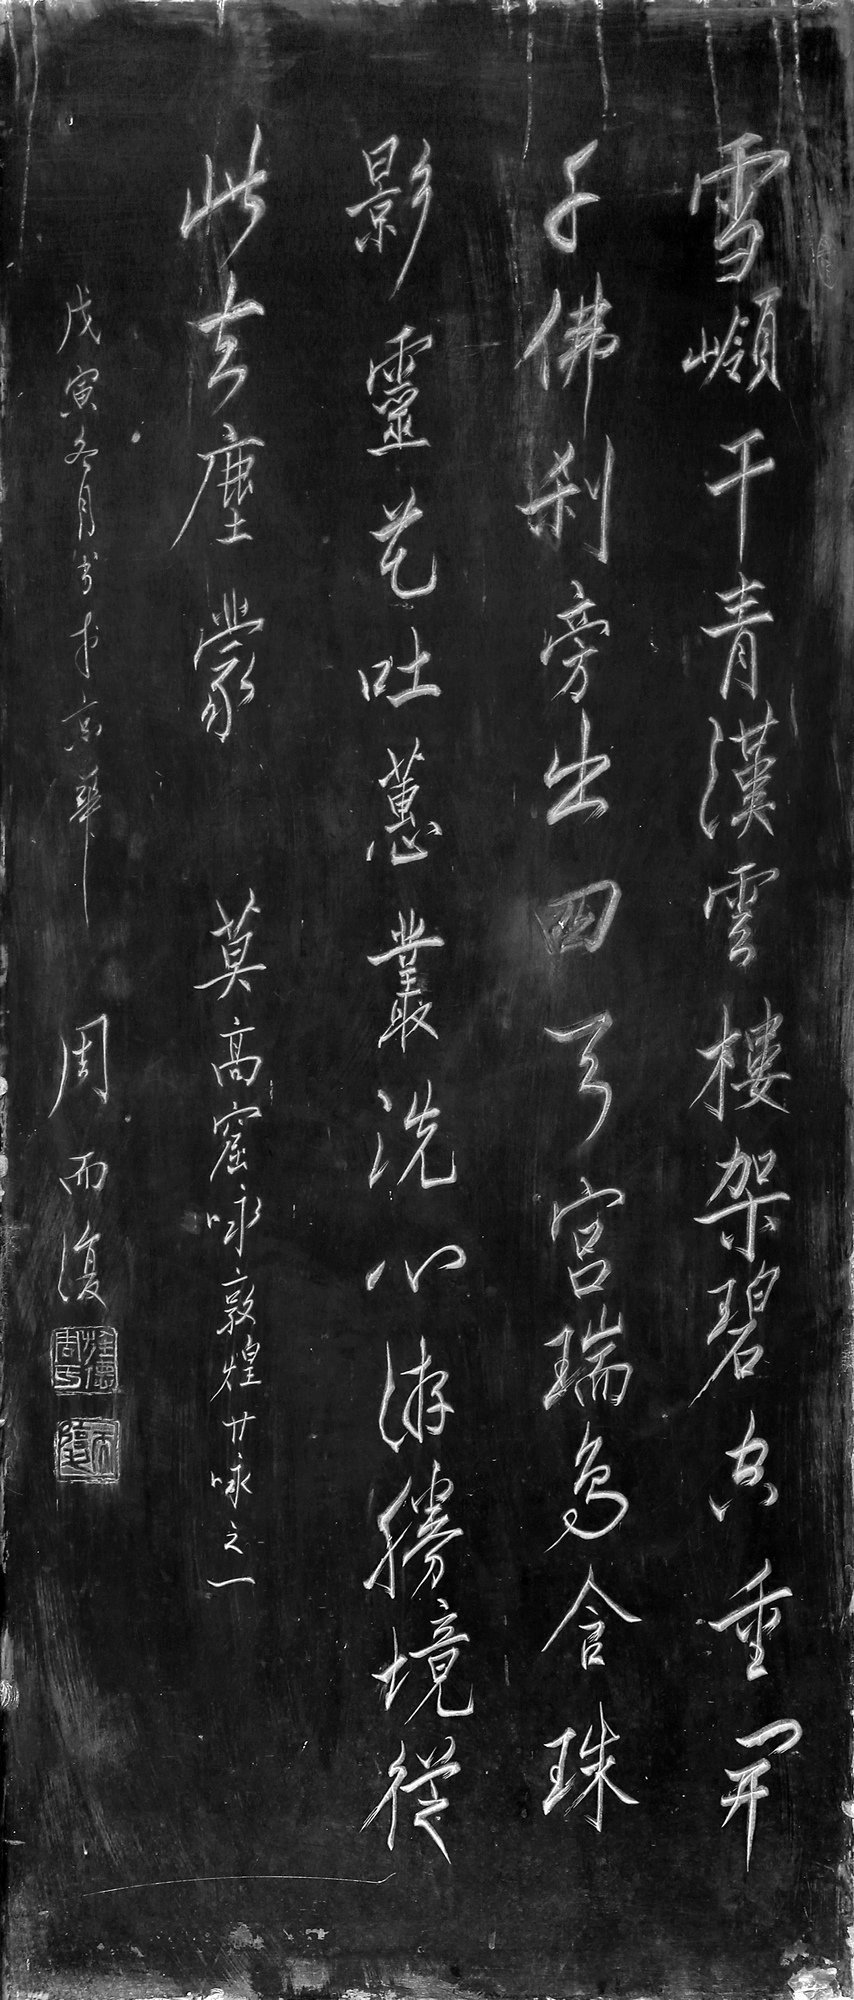 雪嶺干青漢雲樓架碧空重開
千佛刹旁出四天宮瑞鳥含珠
影靈花吐蕙叢洗心游勝境從
此去塵蒙 莫高窟咏敦煌廿咏之一
戊寅冬月書於京華 周而復